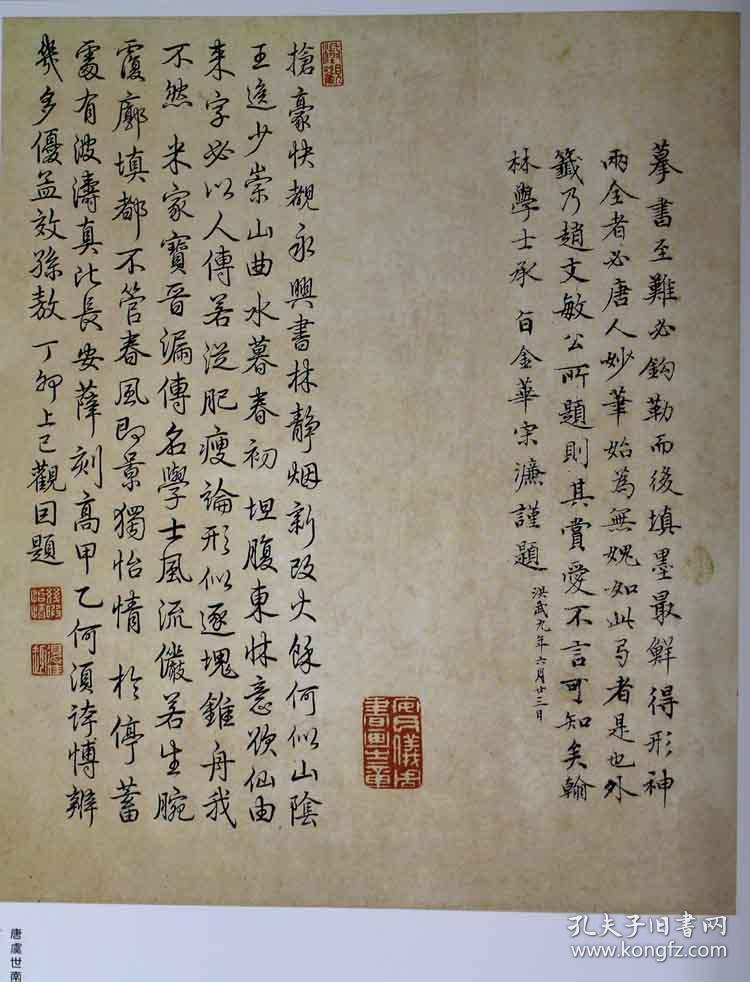 摹書至難必鈎勒而後填墨最鮮得形神
兩全者必唐人妙筆始為無媿如此卷者是也外
籤乃趙文敏公所題則其賞愛不言可知矣翰
林學士承旨金華宋濂謹題
洪武九年六月廿三日
搶豪快覩永興書林靜烟新改火餘何似山陰
王逸少崇山曲水暮春初 坦腹東牀意欲仙由
来字必以人傳若從肥瘦論形似逐塊錐舟我
不然 米家寶晋漏傳名學士風流儼若生腕
覆廓填都不管春風即景獨怡情 於停蓄
處有波濤真比長安薛刻高甲乙何須誇博辨
幾多優孟效孫敖 丁卯上巳觀因題
唐虞世南
孔夫子旧书网
www.kongfz.com